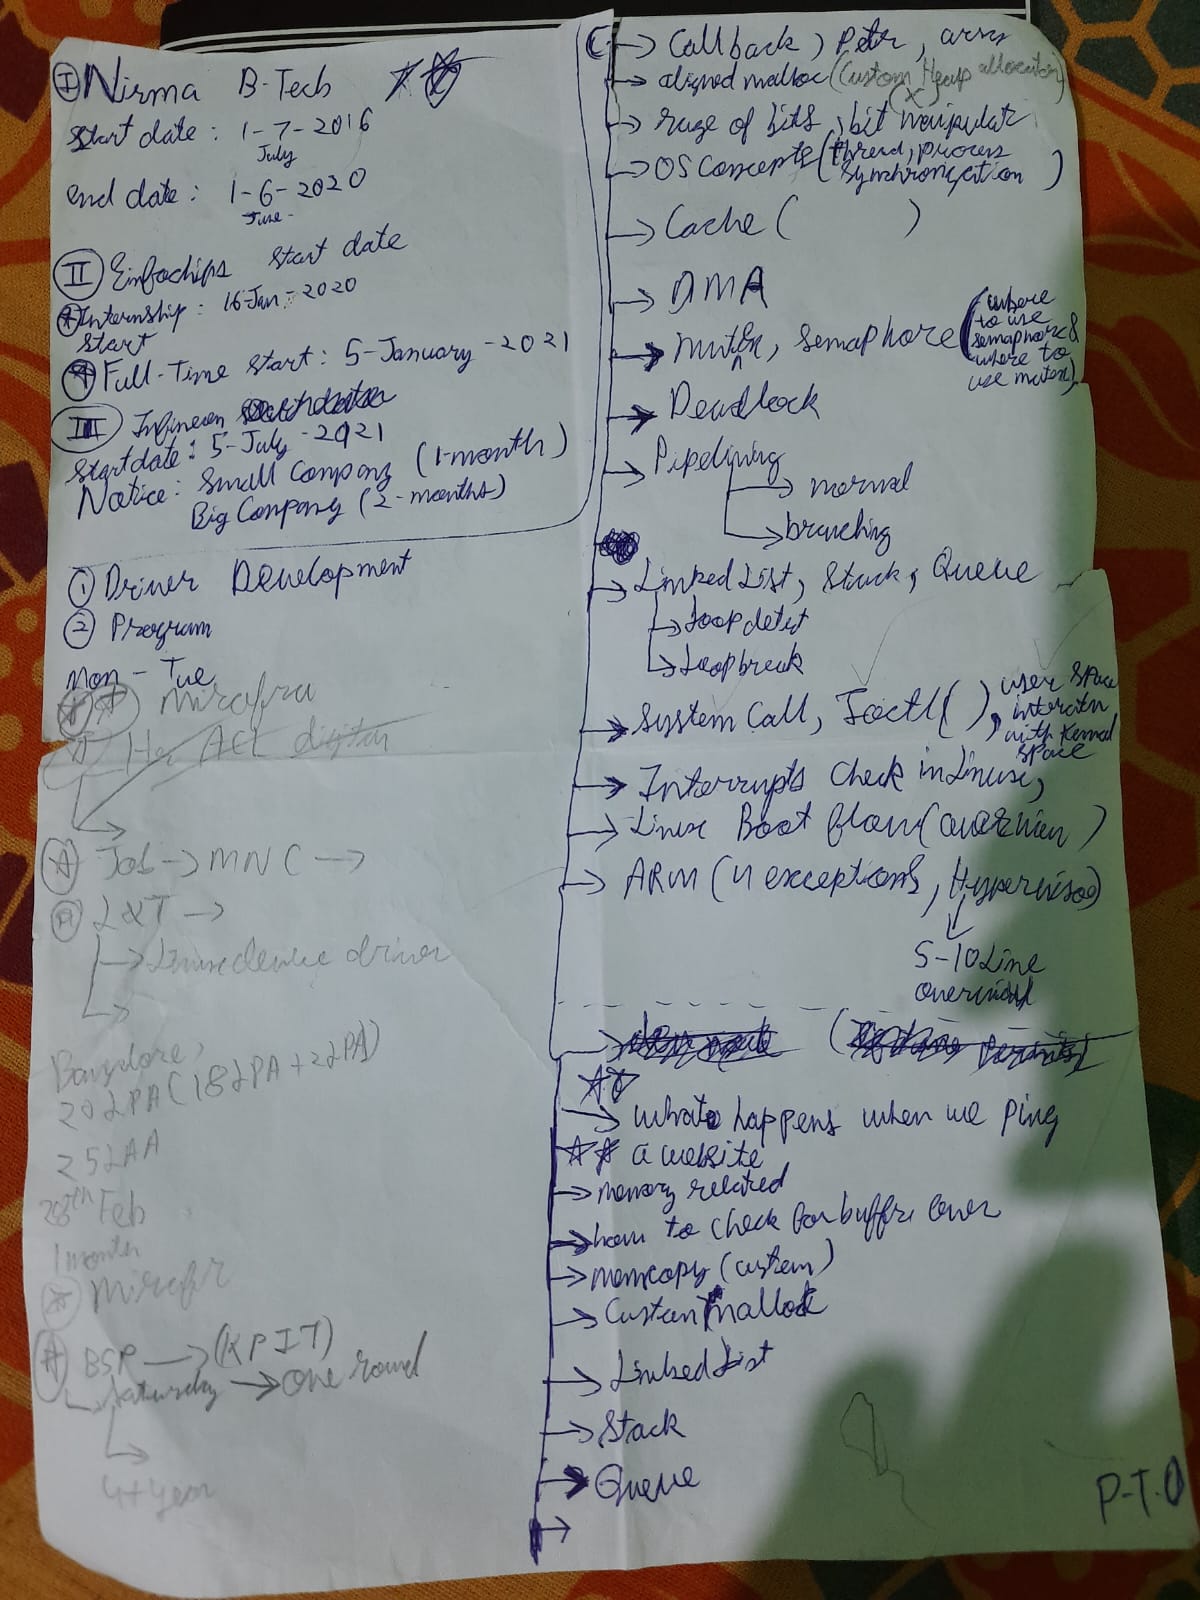 I Nirma B-Tech
Start date: 1-7-2016
July
end date: 1-6-2020
June
II Einfochips start date
Internship: 16-Jan-2020
start
Full-Time start: 5-January-2021
III Infineon
Start date: 5-July-2021
Notice: Small Company (1-month)
Big Company (2-months)
① Driver Development
② Program
Mon - Tue
mirafra
ACL digital
Job → MNC →
L&T →
→ Linux device driver
Bangalore,
20LPA (18LPA + 2LPA)
25LPA
28th Feb
1 month
Mirafr
BSP → (KPIT)
Saturday → one round
4+ year
C → Callback, Pttr, array
→ aligned malloc (Custom Heap allocation)
(x)
→ range of bits, bit manipulat
→ OS Concepts (thread, process
synchronization)
→ Cache ( )
→ DMA
→ Mutex, Semaphore (where
to use
semaphore &
where to
use mutex)
→ Deadlock
→ Pipelining
→ normal
→ branching
→ Linked List, Stack, Queue
→ Loop detect
→ Loop break
→ System Call, Ioctl( ), user space
interactn
with Kernel
space
→ Interrupts Check in Linux,
→ Linux Boot flow (overview)
→ ARM (4 exceptions, Hypervisor)
5-10 Line
overview
→ what happens when we ping
a website
→ memory related
→ how to check for buffer over
→ memcopy (custom)
→ Custom malloc
→ Linked List
→ Stack
→ Queue
→
P.T.O